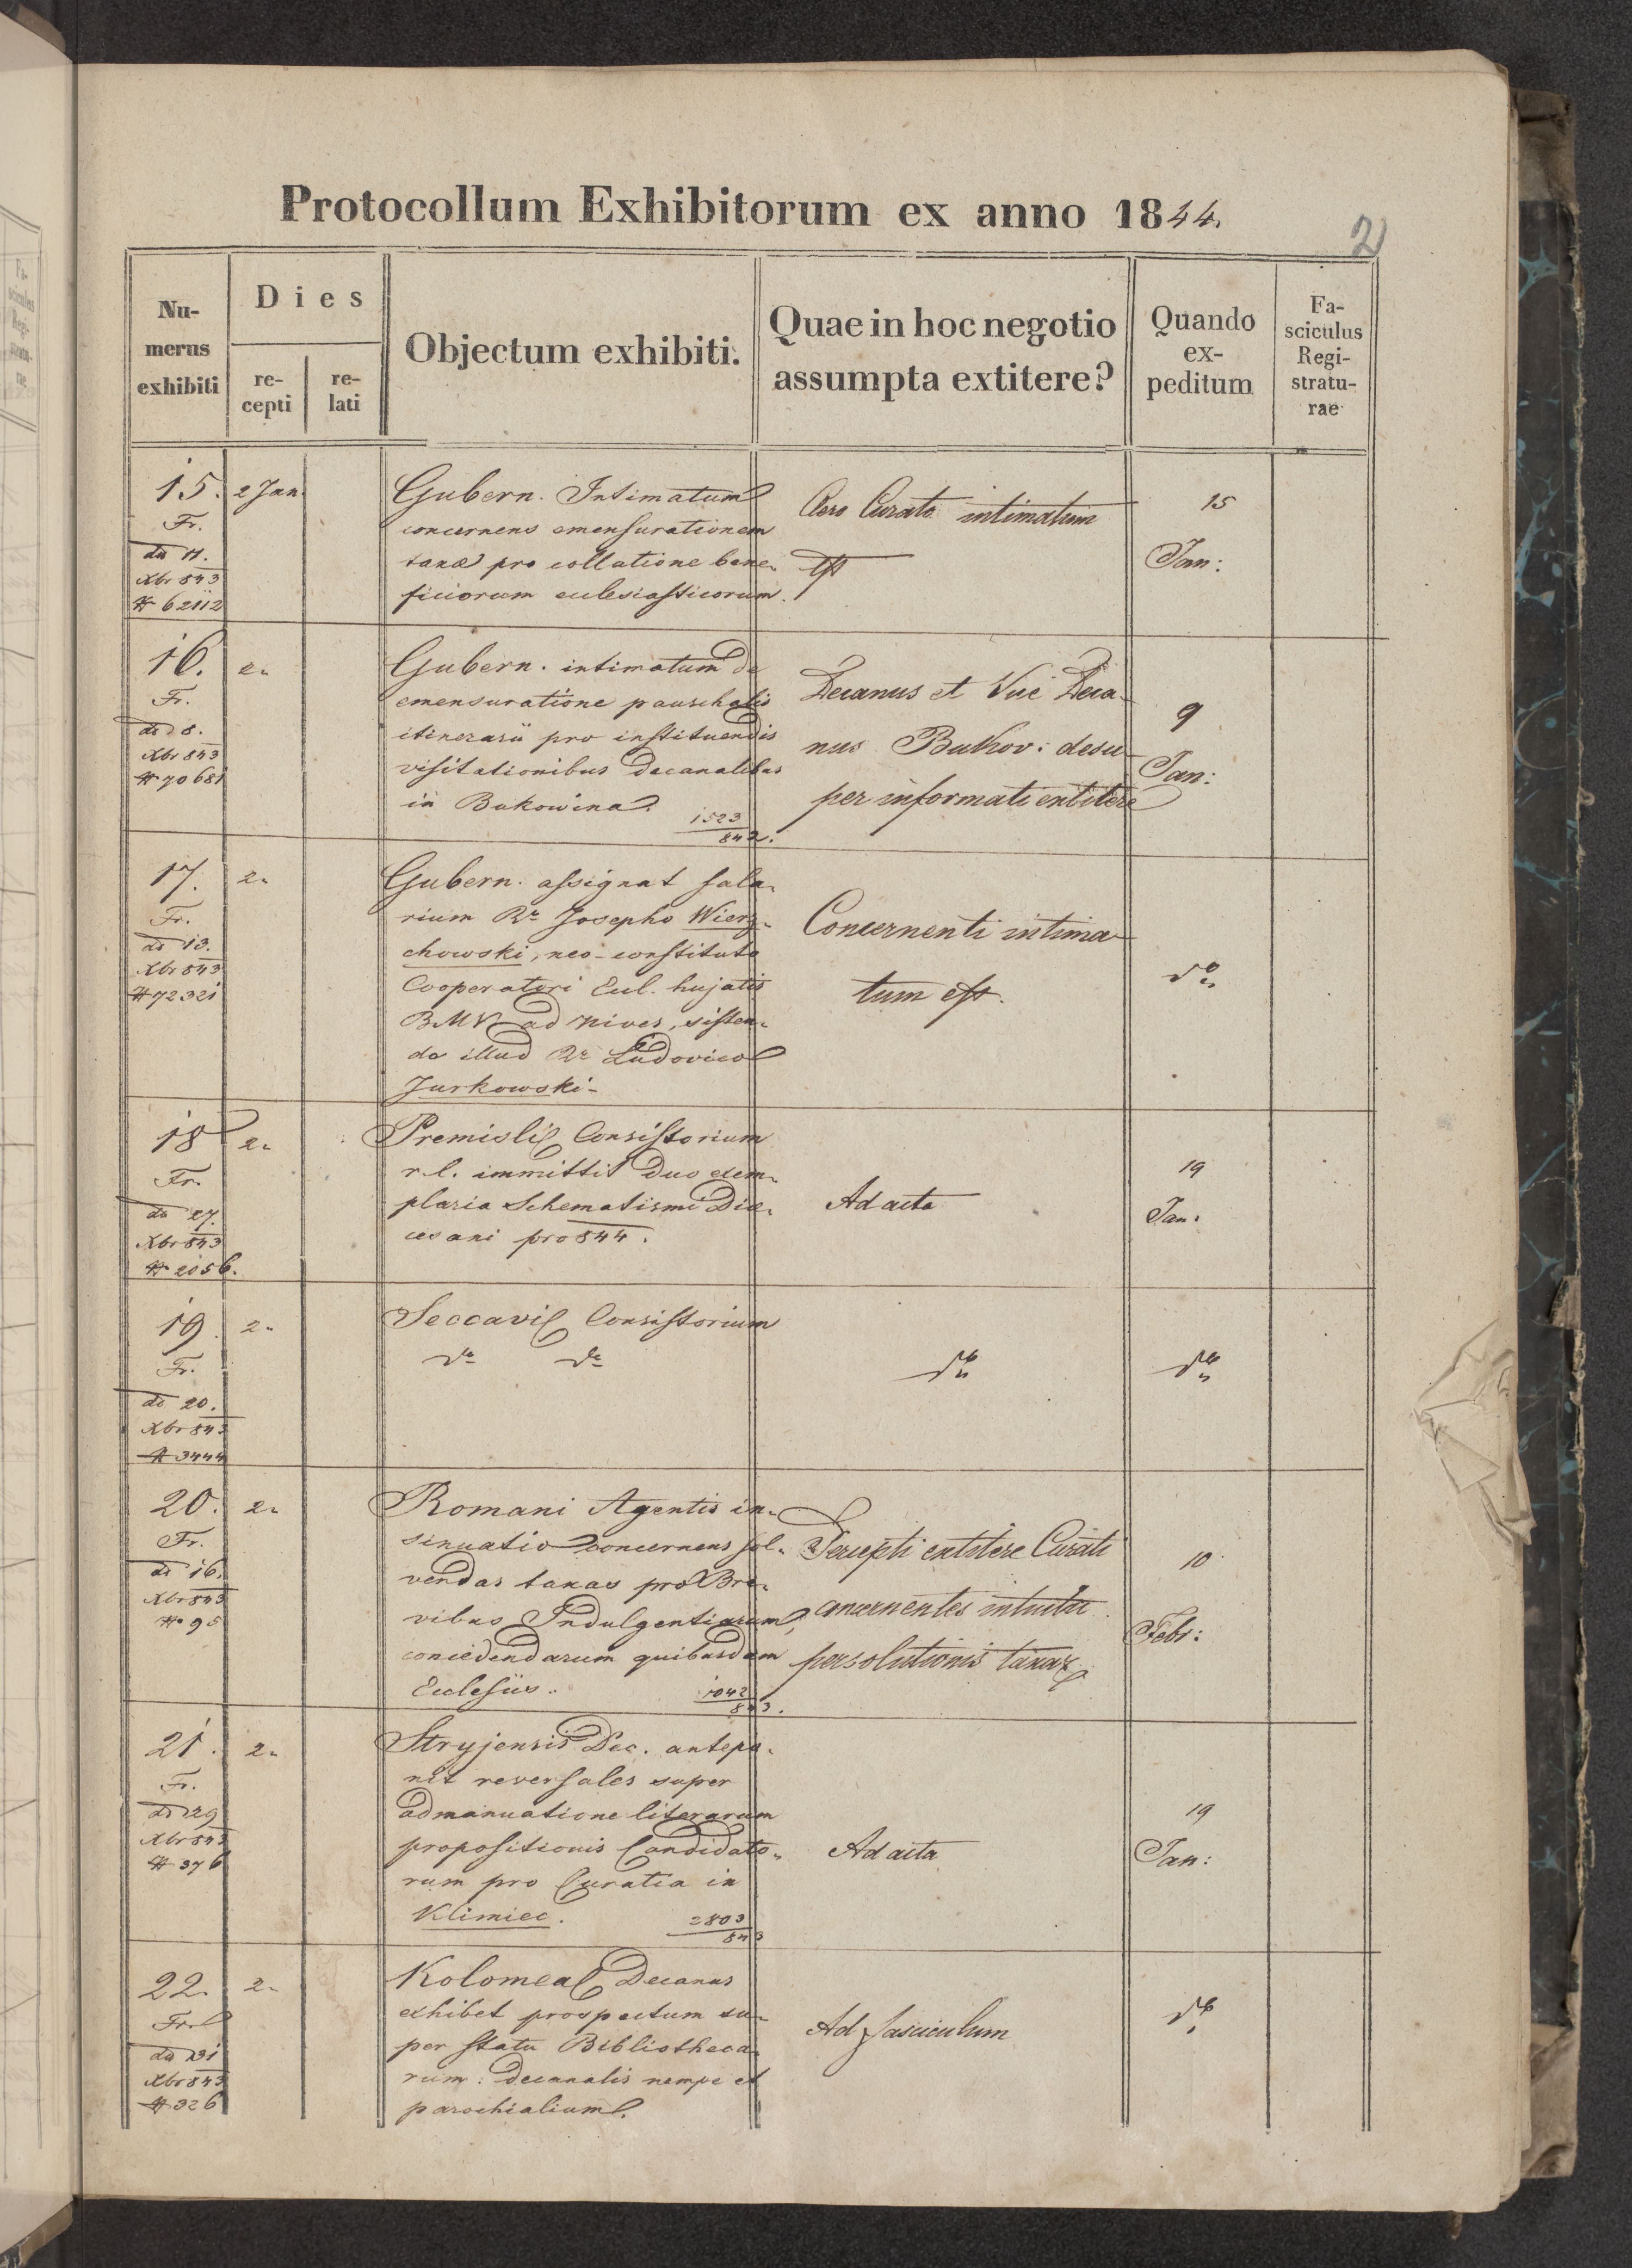 Protocollum Exhibitorum ex anno 1844.
2
Numerus exhibiti
Dies
recepti
relati
Objectum exhibiti.
Quae in hoc negotio
assumpta extitere?
Quando
ex-
peditum
Fa-
sciculus
Regi-
stratu-
rae
15. 2 Jan.
Fr.
dd 11.
Xbr 843
# 62112
Gubern. Intimatum
concernens emensurationem
taxæ pro collatione bene-
ficiorum ecclesiasticorum.
Clero Curato intimatum
est
15
Jan:
16. 2.
Fr.
dd 8.
Xbr 843
# 70681
Gubern. intimatum de
emensuratione pauschalis
itinerarii pro instituendis
visitationibus decanalibus
in Bukowina.
1523
842.
Decanus et Vice Deca-
nus Bukov: desu-
per informati extitere
9
Jan:
17. 2.
Fr.
dd 13.
Xbr 843
# 72321
Gubern. assignat sala-
rium Rr Josepho Wierz-
chowski, neo-constituto
Cooperatori Eccl. hujatis
B.M.V. ad Nives, sisten-
do illud Rr Ludovico
Jurkowski-
Concernenti intima-
tum est.
do
18 2.
Fr.
dd 27.
Xbr 843
# 2056.
Premisli Consistorium
r. l. immittit duo exem-
plaria Schematismi Diœ-
cesani pro 844.
Ad acta
19
Jan:
19. 2.
Fr.
dd 20.
Xbr 843
# 3444
Seccavi Consistorium
do do
do
do
20. 2.
Fr.
dd 16.
Xbr 843
# 95
Romani Agentis in-
sinuatio concernens sol-
vendas taxas pro Bre-
vibus Indulgentiarum,
concedendarum quibusdam
Ecclesiis.
1042
843.
extitere Curati
concernentes intuitu
persolutionis taxar
10
Febr:
21. 2.
Fr.
dd 29
Xbr 843
# 376
Stryjensis Dec. antepo-
nit reversales super
admanuatione literarum
propositionis Candidato-
rum pro Curatia in
Klimiec.
2803
843
Ad acta
19
Jan:
22. 2.
Fr.
dd 31
Xbr 843
# 326
Kolomea Decanus
exhibet prospectum su-
per statu Bibliotheca-
rum: decanalis nempe et
parochialium.
Ad fasciculum
do